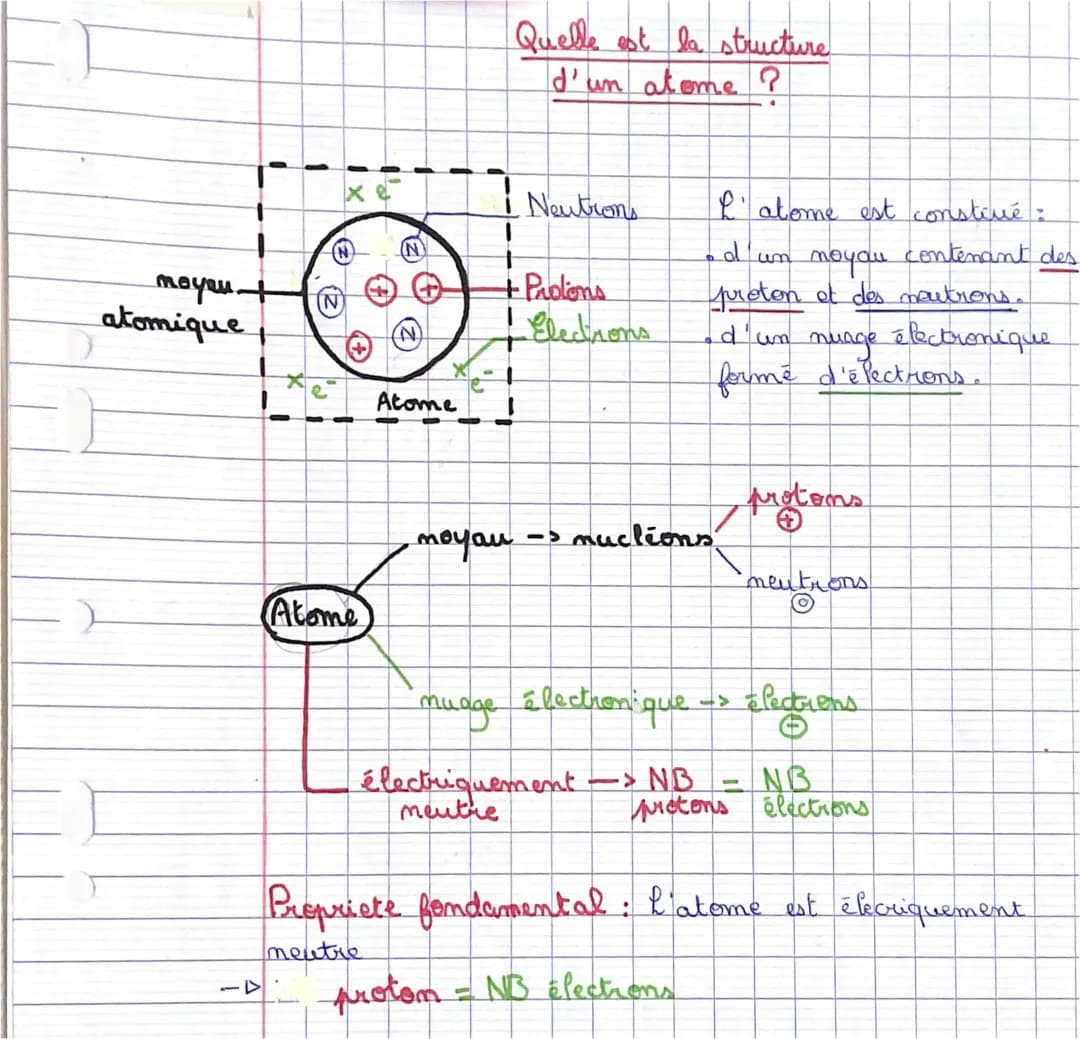 Quelle est la structure
d'un atome ?
x e⁻
Neutrons
N
N
noyau
atomique
+
+
N
Protons
+
N
Electrons
x e⁻
x e⁻
Atome
L'atome est constiué :
• d'un noyau contenant des
proton et des neutrons.
• d'un nuage électronique
formé d'électrons.
Atome
noyau -> nucléons
protons
+
neutrons
o
nuage électronique -> électrons
-
électriquement —> NB = NB
neutre protons électrons
Propriete fondamental : L'atome est élecriquement
neutre
-▷ proton = NB électrons